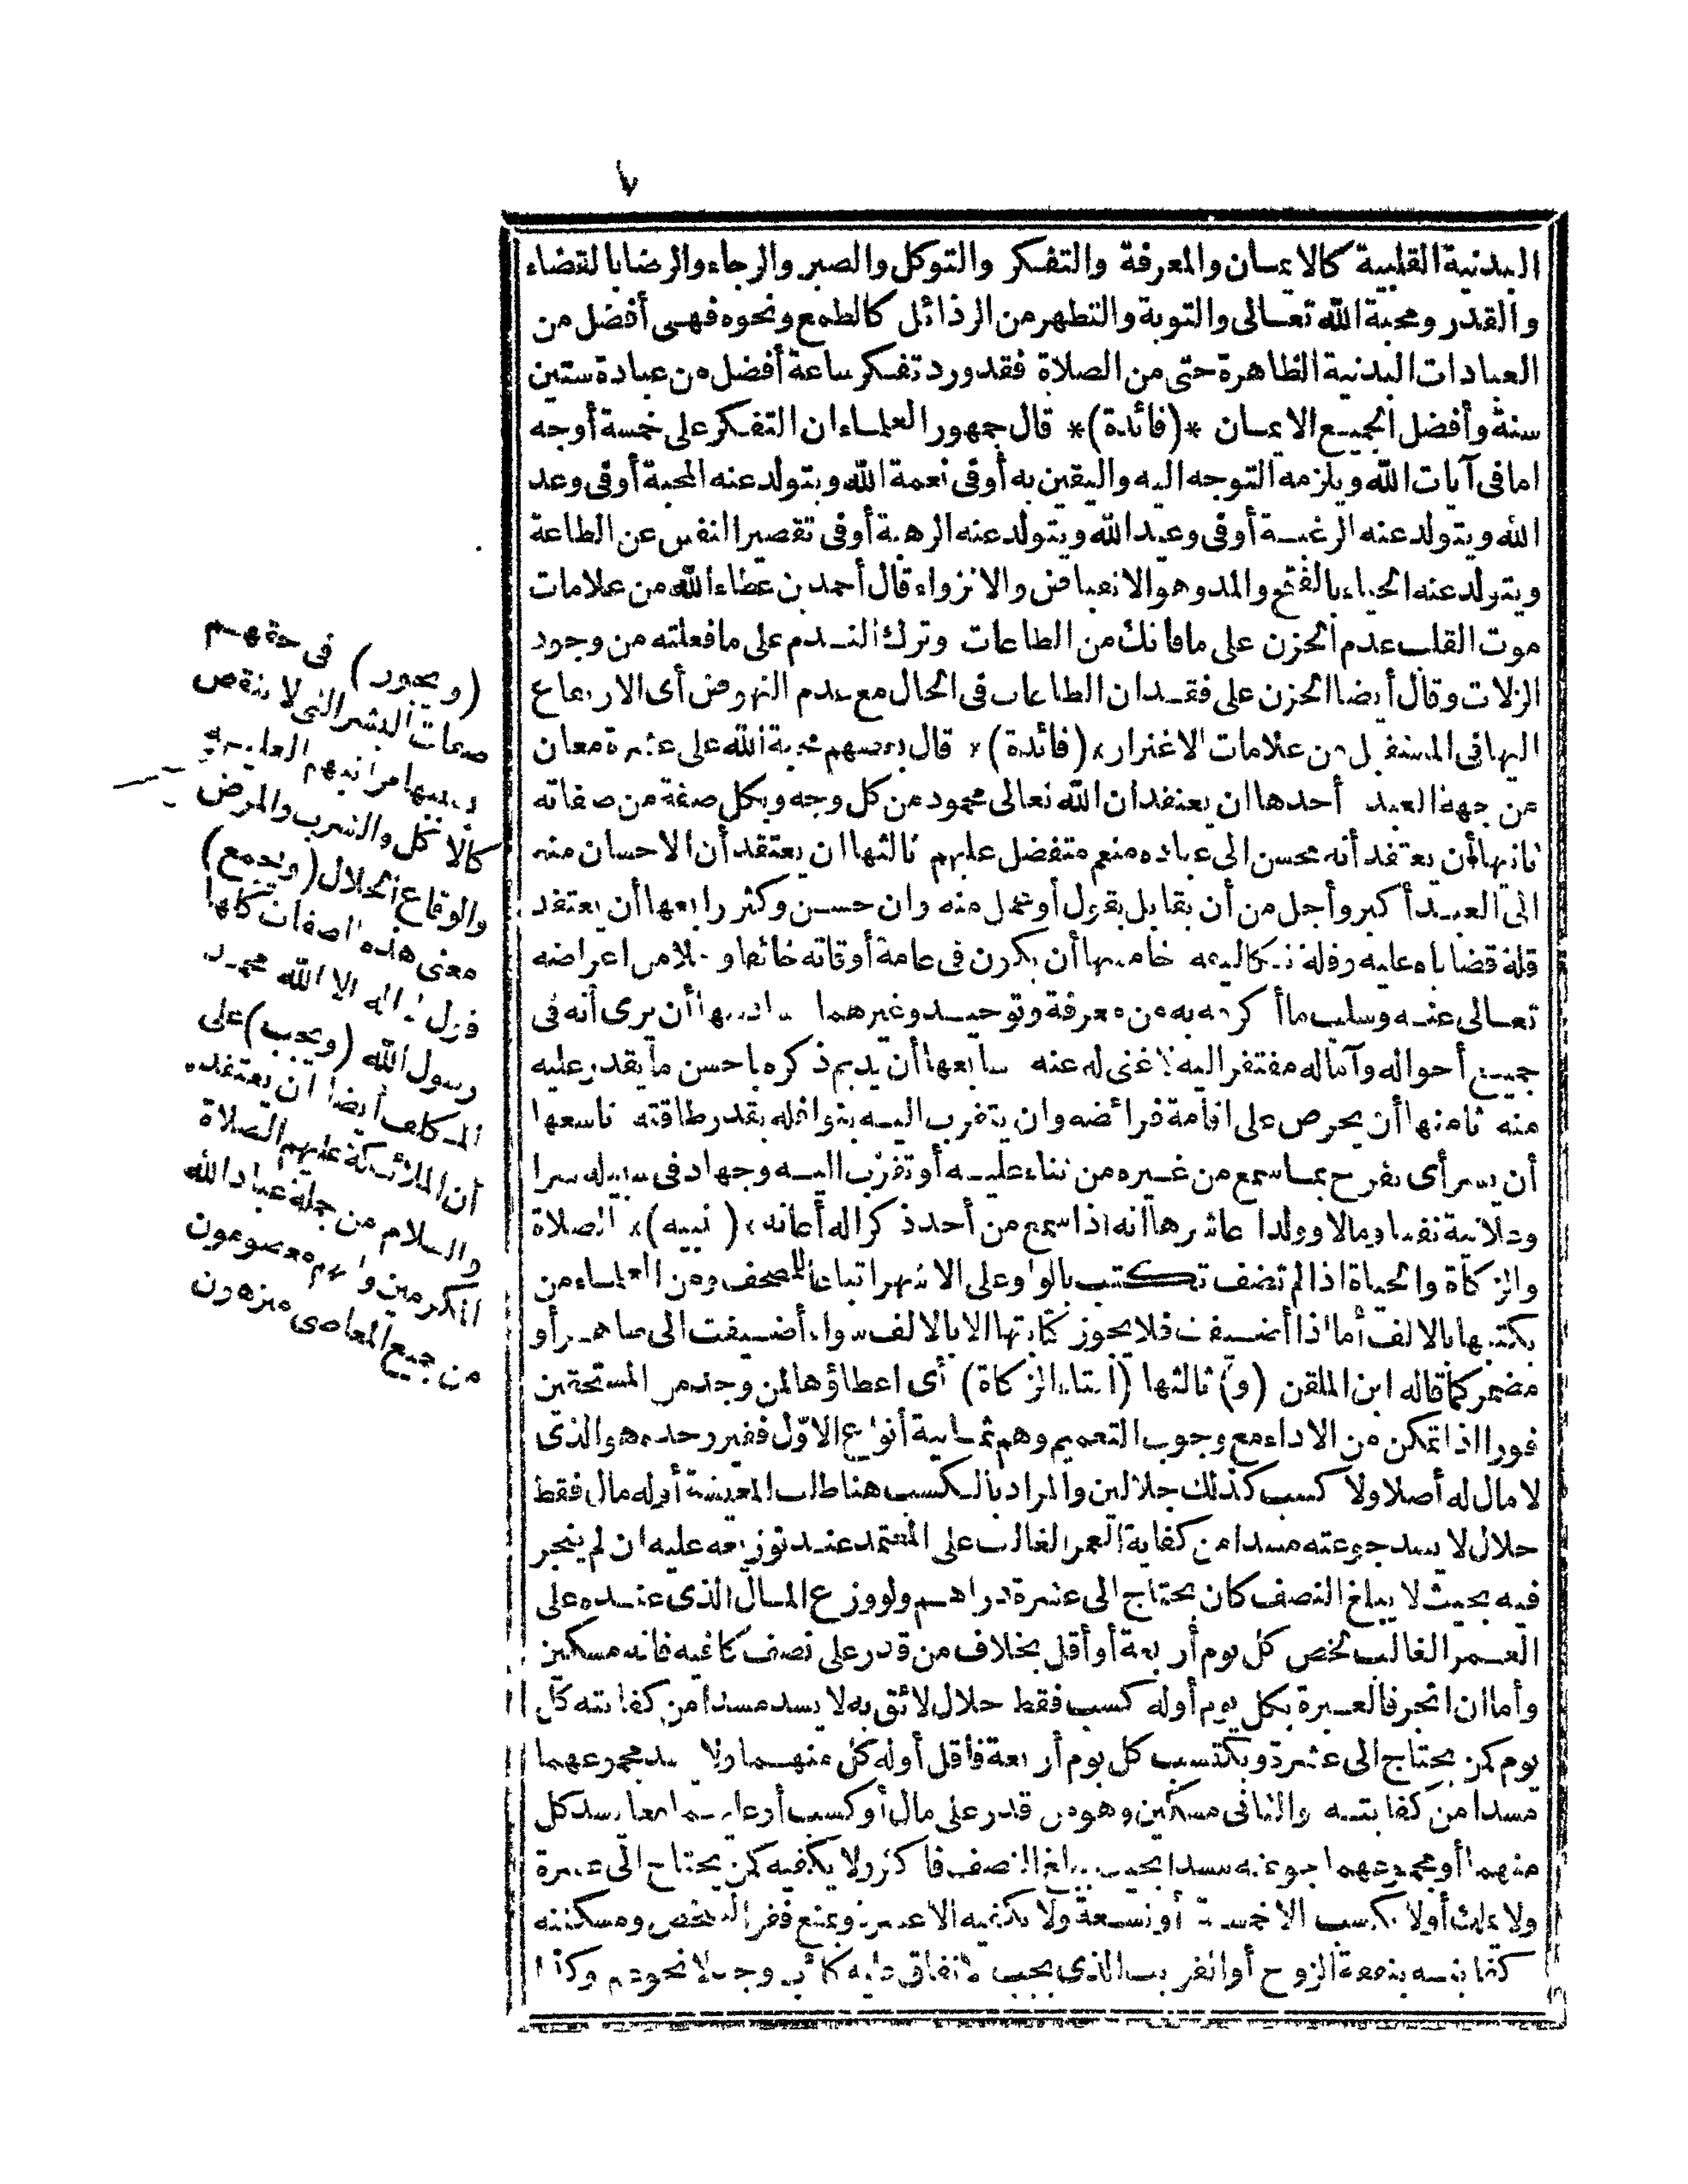 ٧
البدنية القلبية كالايمان والمعرفة والتفكر والتوكل والصبر والرجاء والرضا بالقضاء
والقدر ومحبة الله تعالى والتوبة والتطهر من الرذائل كالطمع ونحوه فهى أفضل من
العبادات البدنية الظاهرة حتى من الصلاة فقد ورد تفكر ساعة أفضل من عبادة ستين
سنة وأفضل الجميع الايمان *(فائدة)* قال جمهور العلماء ان التفكر على خمسة أوجه
اما فى آيات الله ويلزمه التوجه اليه واليقين به أوفى نعمة الله ويتولد عنه المحبة أوفى وعد
الله ويتولد عنه الرغبة أوفى وعيد الله ويتولد عنه الرهبة أوفى تقصير النفس عن الطاعة
ويتولد عنه الحياء بالفتح والمد وهو الانقباض والانزواء قال أحمد بن عطاء الله من علامات
موت القلب عدم الحزن على مافاتك من الطاعات وترك الندم على مافعلته من وجود
الزلات وقال أيضا الحزن على فقدان الطاعات فى الحال مع عدم النهوض أى الارتفاع
اليها فى المستقبل من علامات الاغترار *(فائدة)* قال بعضهم محبة الله على عشرة معان
من جهة العبد أحدها ان يعتقد ان الله تعالى محمود من كل وجه وبكل صفة من صفاته
ثانيها أن يعتقد أنه محسن الى عباده منعم متفضل عليهم ثالثها ان يعتقد أن الاحسان منه
الى العبد أكبر وأجل من أن يقابل بقول أو عمل منه وان حسن وكثر رابعها أن يعتقد
قلة قضاياه عليه وقلة تكاليفه خامسها أن يكون فى عامة أوقاته خائفا وجلا من اعراضه
تعالى عنه وسلب ما أكرمه به من معرفة وتوحيد وغيرهما سادسها أن يرى أنه فى
جميع أحواله وآماله مفتقر اليه لا غنى له عنه سابعها أن يديم ذكره باحسن ما يقدر عليه
منه ثامنها أن يحرص على اقامة فرائضه وان يتقرب اليه بنوافله بقدر طاقته تاسعها
أن يسر أى يفرح بما سمع من غيره من ثناء عليه أو تقرب اليه وجهاد فى سبيله سرا
وعلانية نفسا ومالا وولدا عاشرها أنه اذا سمع من أحد ذكر الله أعانه *(تنبيه)* الصلاة
والزكاة والحياة اذا لم تضف تكتب بالواو على الاشهر اتباعا للمصحف ومن العلماء من
يكتبها بالالف أما اذا أضيفت فلا يجوز كتابتها الا بالالف سواء أضيفت الى ظاهر أو
مضمر كما قاله ابن الملقن (و) ثالثها (ايتاء الزكاة) أى اعطاؤها لمن وجد من المستحقين
فورا اذا تمكن من الاداء مع وجوب التعميم وهم ثمانية أنواع الاوّل فقير وحده هو الذى
لا مال له أصلا ولا كسب كذلك حلالين والمراد بالكسب هنا طلب المعيشة أوله مال فقط
حلال لا يسد جوعته مسدا من كفاية العمر الغالب على المعتمد عند توزيعه عليه ان لم يتجر
فيه بحيث لا يبلغ النصف كان يحتاج الى عشرة دراهم ولو وزع المال الذى عنده على
العمر الغالب لخص كل يوم أربعة أو أقل بخلاف من قدر على نصف كافيه فانه مسكين
وأما ان اتجر فالعبرة بكل يوم أوله كسب فقط حلال لائق به لا يسد مسدا من كفايته كل
يوم كمن يحتاج الى عشرة ويكتسب كل يوم أربعة فأقل أوله كل منهما ولا يسد مجموعهما
مسدا من كفايته والثانى مسكين وهو من قدر على مال أو كسب أو عليهما معا يسد كل
منهما أو مجموعهما جوعته مسدا بحيث يبلغ النصف فاكثر ولا يكفيه كمن يحتاج الى عشرة
ولا يملك أولا يكسب الا خمسة أو تسعة ولا يكفيه الا عشرة ويمنع فقر الشخص ومسكنته
كفايته بنفقة الزوج أو القريب الذى يجب الانفاق عليه كأب وجد لا نحو عم وكذا
(ويجوز) فى حقهم
صفات البشر التى لا تنقص
بسببها مراتبهم العلية
كالاكل والشرب والمرض
والوقاع الحلال (ويجمع)
معنى هذه الصفات كلها
قول لا اله الا الله محمد
رسول الله (ويجب) على
المكلف أيضا ان يعتقد
أن الملائكة عليهم الصلاة
والسلام من جملة عباد الله
المكرمين وانهم معصومون
من جميع المعاصى منزهون